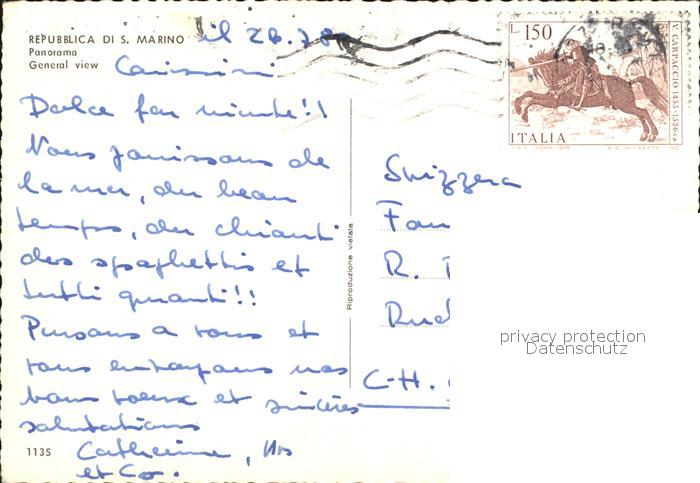 REPUBBLICA DI S. MARINO
Panorama
General view
il 26.7.
Carissimi
Dolce far niente!!
Nous jouissons de
la mer, du beau
temps, du chianti
des spaghettis et
tutti quanti!!
Pensons a vous et
vous envoyons nos
bons voeux et sincères
salutations
Catherine, Urs
et Co.
1135
Riproduzione vietata
L. 150
V. CARPACCIO 1455-1526 ca
ITALIA
Svizzera
Fam
R.
Rud
C-H.
privacy protection
Datenschutz